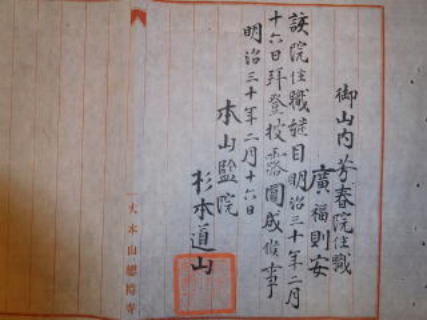 御山内芳春院住職
廣福則安
該院住職継目明治三十年二月
十六日拝登披露圓成候事
明治三十年二月十六日
本山監院
杉本道山
大本山總持寺